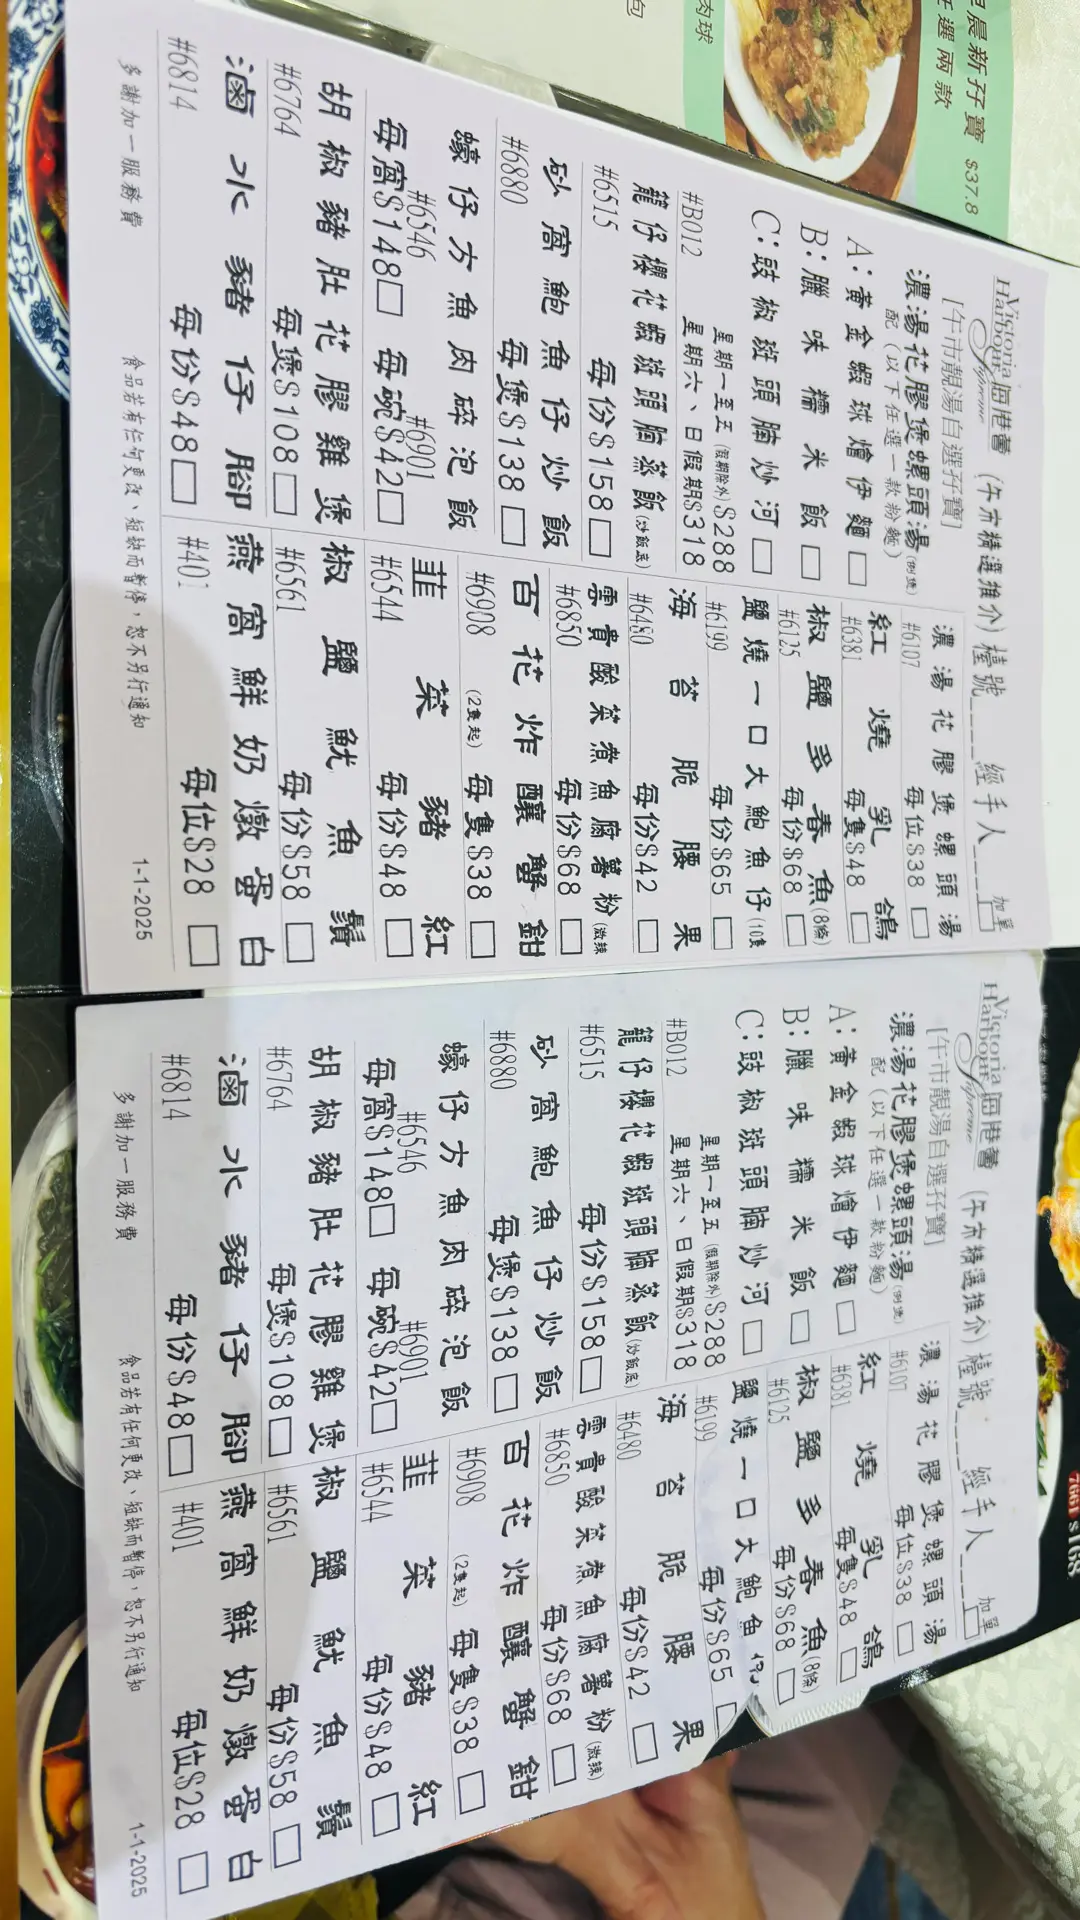 Victoria
Harbour 海港薈 (午市精選推介) 檯號____ 經手人____ 加單
Supreme
[午市靚湯自選孖寶]
濃湯花膠煲螺頭湯(例煲)
配(以下任選一款粉麵)
A:黃金蝦球燴伊麵
B:臘味糯米飯
C:豉椒斑頭腩炒河
星期一至五(假期除外)$288
#B012 星期六、日假期$318
籠仔櫻花蝦斑頭腩蒸飯(炒飯底)
#6515 每份$158
砂窩鮑魚仔炒飯
#6880 每煲$138
蠔仔方魚肉碎泡飯
#6546 #6901
每窩$148 每碗$42
胡椒豬肚花膠雞煲
#6764 每煲$108
滷水豬仔腳
#6814 每份$48
濃湯花膠煲螺頭湯
#6107 每位$38
紅燒乳鴿
#6381 每隻$48
椒鹽多春魚(8條)
#6125 每份$68
鹽燒一口大鮑魚仔(10隻
#6199 每份$65
海苔脆腰果
#6480 每份$42
雲貴酸菜煮魚腐薯粉(微辣
#6850 每份$68
百花炸釀蟹鉗
#6908 (2隻起) 每隻$38
韮菜豬紅
#6544 每份$48
椒鹽魷魚鬚
#6561 每份$58
燕窩鮮奶燉蛋白
#401 每位$28
多謝加一服務費 食品若有任何更改、短缺而暫停,恕不另行通知 1-1-2025
Victoria
Harbour 海港薈 (午市精選推介) 檯號____ 經手人____ 加單
Supreme
[午市靚湯自選孖寶]
濃湯花膠煲螺頭湯(例煲)
配(以下任選一款粉麵)
A:黃金蝦球燴伊麵
B:臘味糯米飯
C:豉椒斑頭腩炒河
星期一至五(假期除外)$288
#B012 星期六、日假期$318
籠仔櫻花蝦斑頭腩蒸飯(炒飯底)
#6515 每份$158
砂窩鮑魚仔炒飯
#6880 每煲$138
蠔仔方魚肉碎泡飯
#6546 #6901
每窩$148 每碗$42
胡椒豬肚花膠雞煲
#6764 每煲$108
滷水豬仔腳
#6814 每份$48
濃湯花膠煲螺頭湯
#6107 每位$38
紅燒乳鴿
#6381 每隻$48
椒鹽多春魚(8條)
#6125 每份$68
鹽燒一口大鮑魚仔
#6199 每份$65
海苔脆腰果
#6480 每份$42
雲貴酸菜煮魚腐薯粉(微辣)
#6850 每份$68
百花炸釀蟹鉗
#6908 (2隻起) 每隻$38
韮菜豬紅
#6544 每份$48
椒鹽魷魚鬚
#6561 每份$58
燕窩鮮奶燉蛋白
#401 每位$28
多謝加一服務費 食品若有任何更改、短缺而暫停,恕不另行通知 1-1-2025
晨新孖寶 $37.8
選兩款
肉球
包
$168